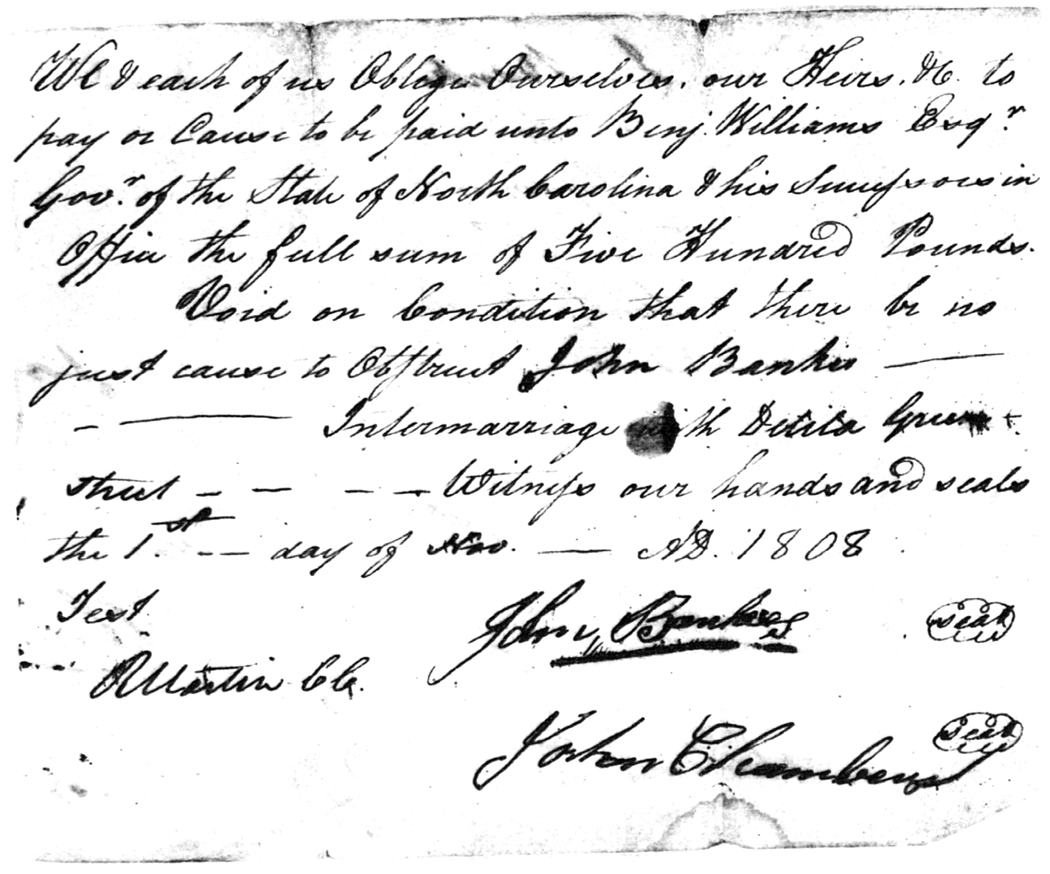 We & each of us Oblige Ourselves, our Heirs, &C. to
pay or Cause to be paid unto Benj. Williams Esqr.
Govr. of the State of North Carolina & his Successors in
Office the full sum of Five Hundred Pounds.
Void on Condition that there be no
just cause to Obstruct John Banks —
- — Intermarriage with Delila Green
street - — - — Witness our hands and seals
the 1.st -— day of Nov. — AD. 1808
Test
John Bankes seal
RMartin CC.
John Chambers seal